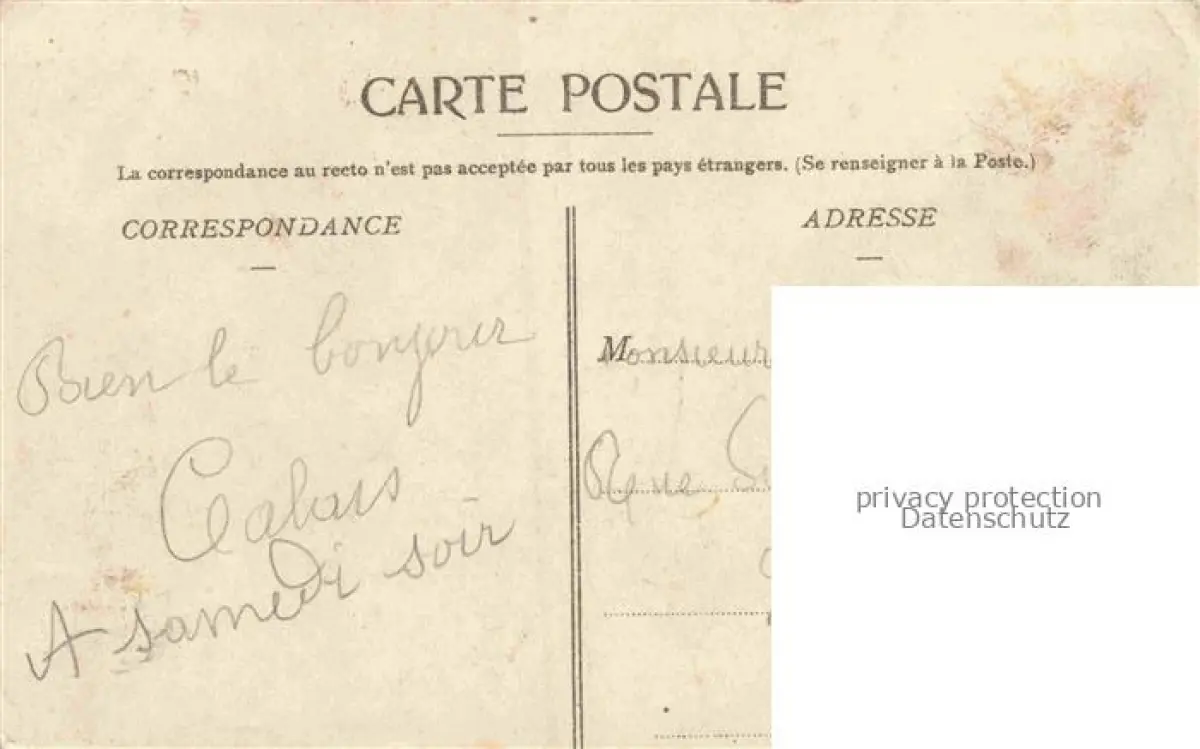 CARTE POSTALE
La correspondance au recto n'est pas acceptée par tous les pays étrangers. (Se renseigner à la Poste.)
CORRESPONDANCE
ADRESSE
Bien le bonjour
Calais
A samedi soir
Monsieur
Rue
privacy protection
Datenschutz